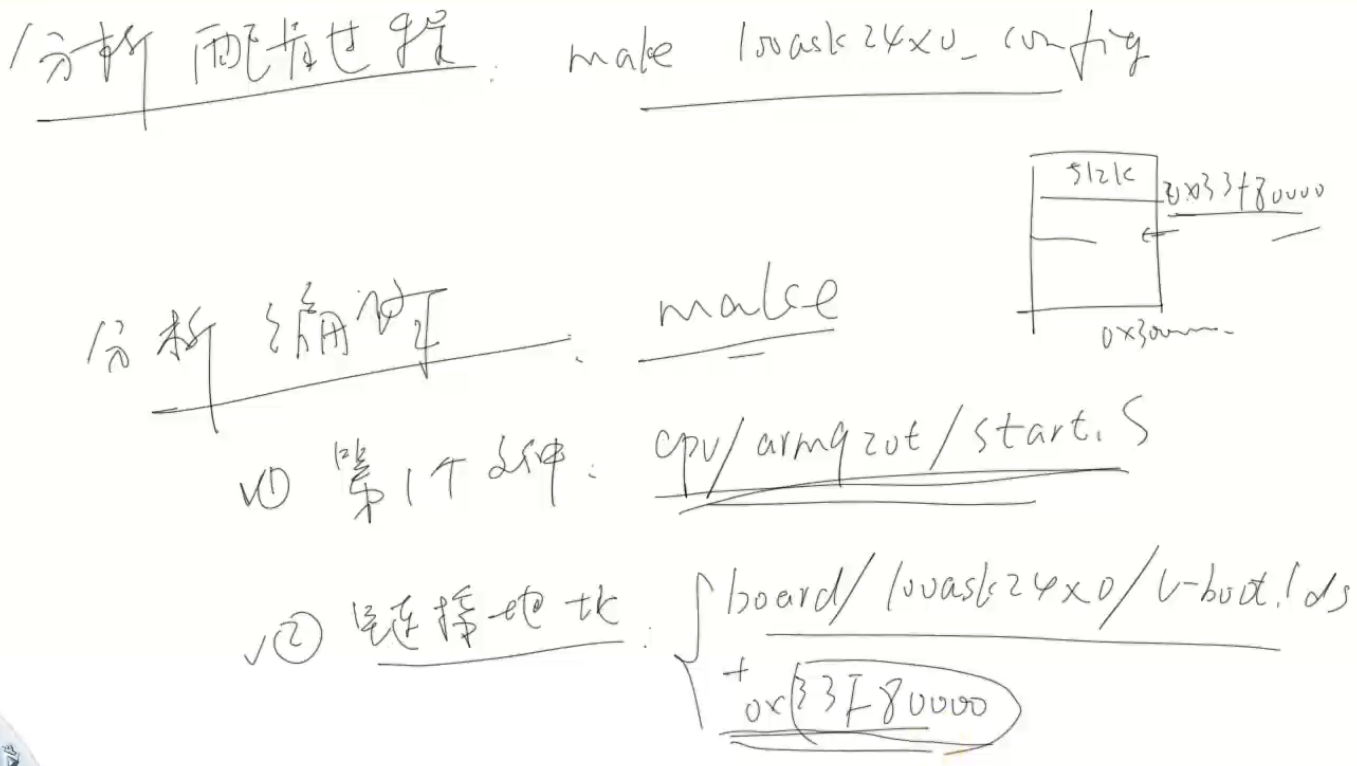 分析配置过程: make 100ask24x0_config
512k
0x33f80000
0x30000000
分析编译: make
① 第1个文件: cpu/arm920t/start.S
② 链接地址: board/100ask24x0/u-boot.lds
+ 0x33F80000